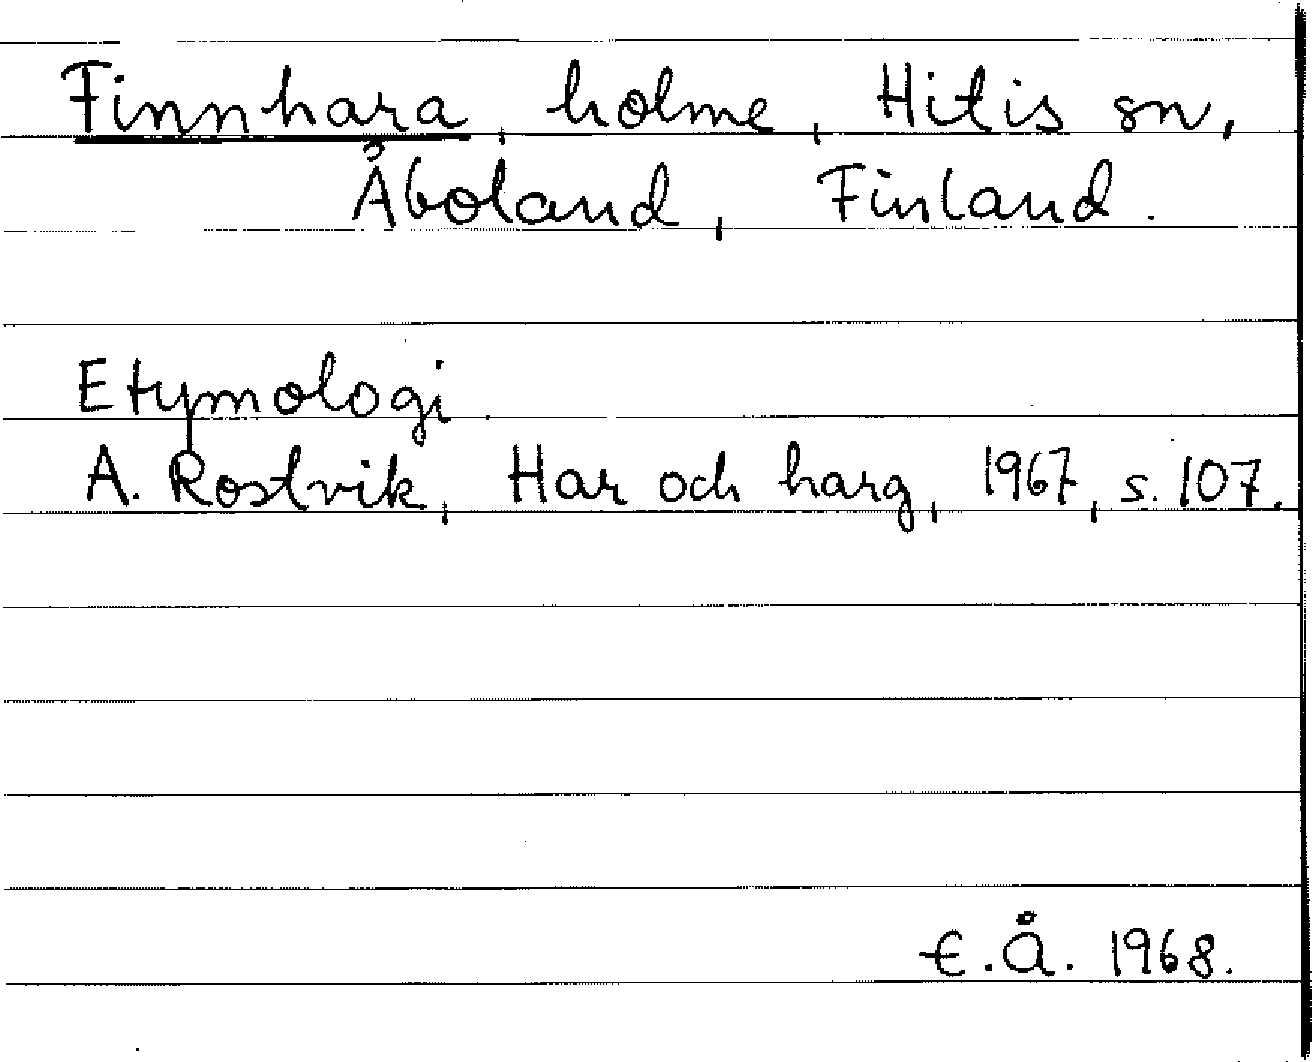 Finnhara, holme, Hitis sn,
Åboland, Finland.
Etymologi.
A. Rostvik, Har och harg, 1967, s. 107.
E.Å. 1968.